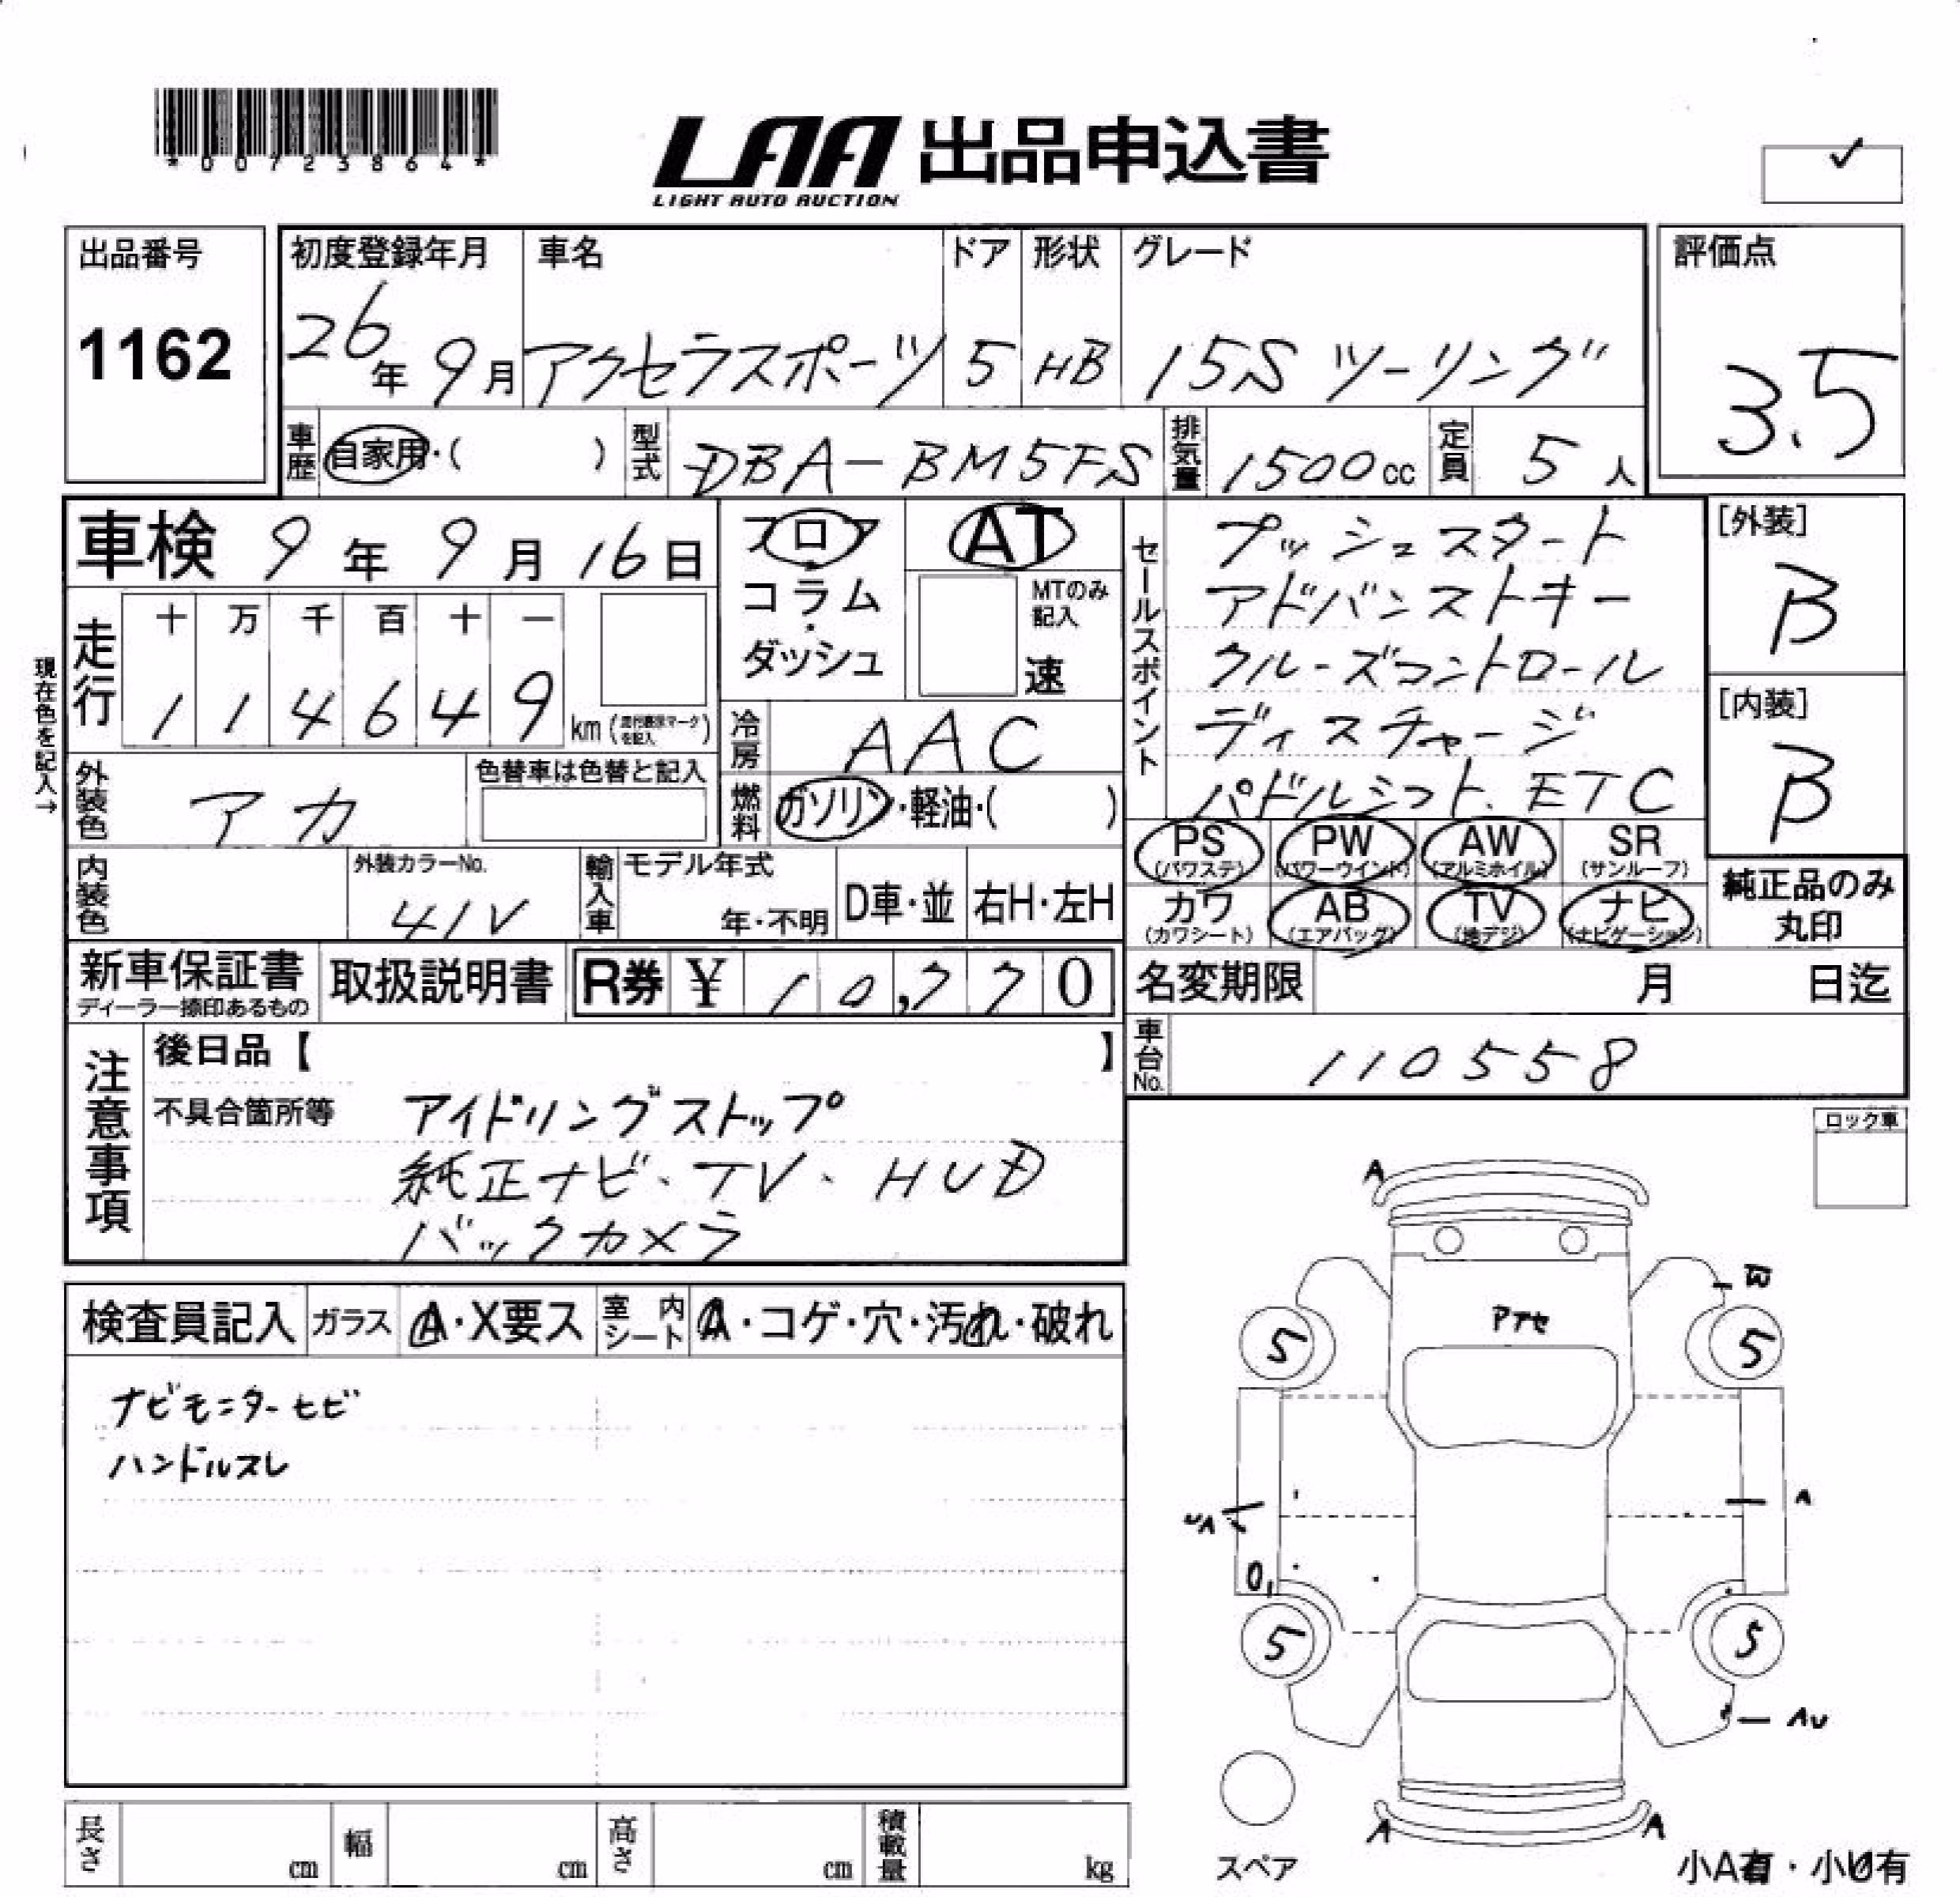 *00723864*
LAA 出品申込書
LIGHT AUTO AUCTION
✓
出品番号
1162
初度登録年月
26年 9月
車名
アクセラスポーツ
ドア
5
形状
HB
グレード
15S ツーリング
評価点
3.5
車歴 自家用・( )
型式 DBA-BM5FS
排気量 1500cc
定員 5人
車検 9年 9月 16日
フロア
コラム
・
ダッシュ
AT
MTのみ記入
速
現在色を記入→
走行
十 万 千 百 十 一
1 1 4 6 4 9 km
冷房 AAC
燃料 ガソリン・軽油・( )
セールスポイント
プッシュスタート
アドバンストキー
クルーズコントロール
ディスチャージ
パドルシフト、ETC
[外装]
B
[内装]
B
外装色 アカ
色替車は色替と記入
内装色
外装カラーNo.
41V
輸入車
モデル年式
年・不明
D車・並
右H・左H
PS (パワステ)
PW (パワーウインド)
AW (アルミホイル)
SR (サンルーフ)
カワ (カワシート)
AB (エアバッグ)
TV (地デジ)
ナビ (ナビゲーション)
純正品のみ
丸印
新車保証書
ディーラー捺印あるもの
取扱説明書
R券 ¥ 10,770
名変期限 月 日迄
車台No. 110558
注意事項
後日品【 】
不具合箇所等 アイドリングストップ
純正ナビ、TV、HUD
バックカメラ
ロック車
検査員記入 ガラス A・X要ス 室内シート A・コゲ・穴・汚れ・破れ
ナビモニターヒビ
ハンドルスレ
A
アアセ
5
5
A
5
5
AU
A
A
スペア
小A有・小U有
長さ cm
幅 cm
高さ cm
積載量 kg